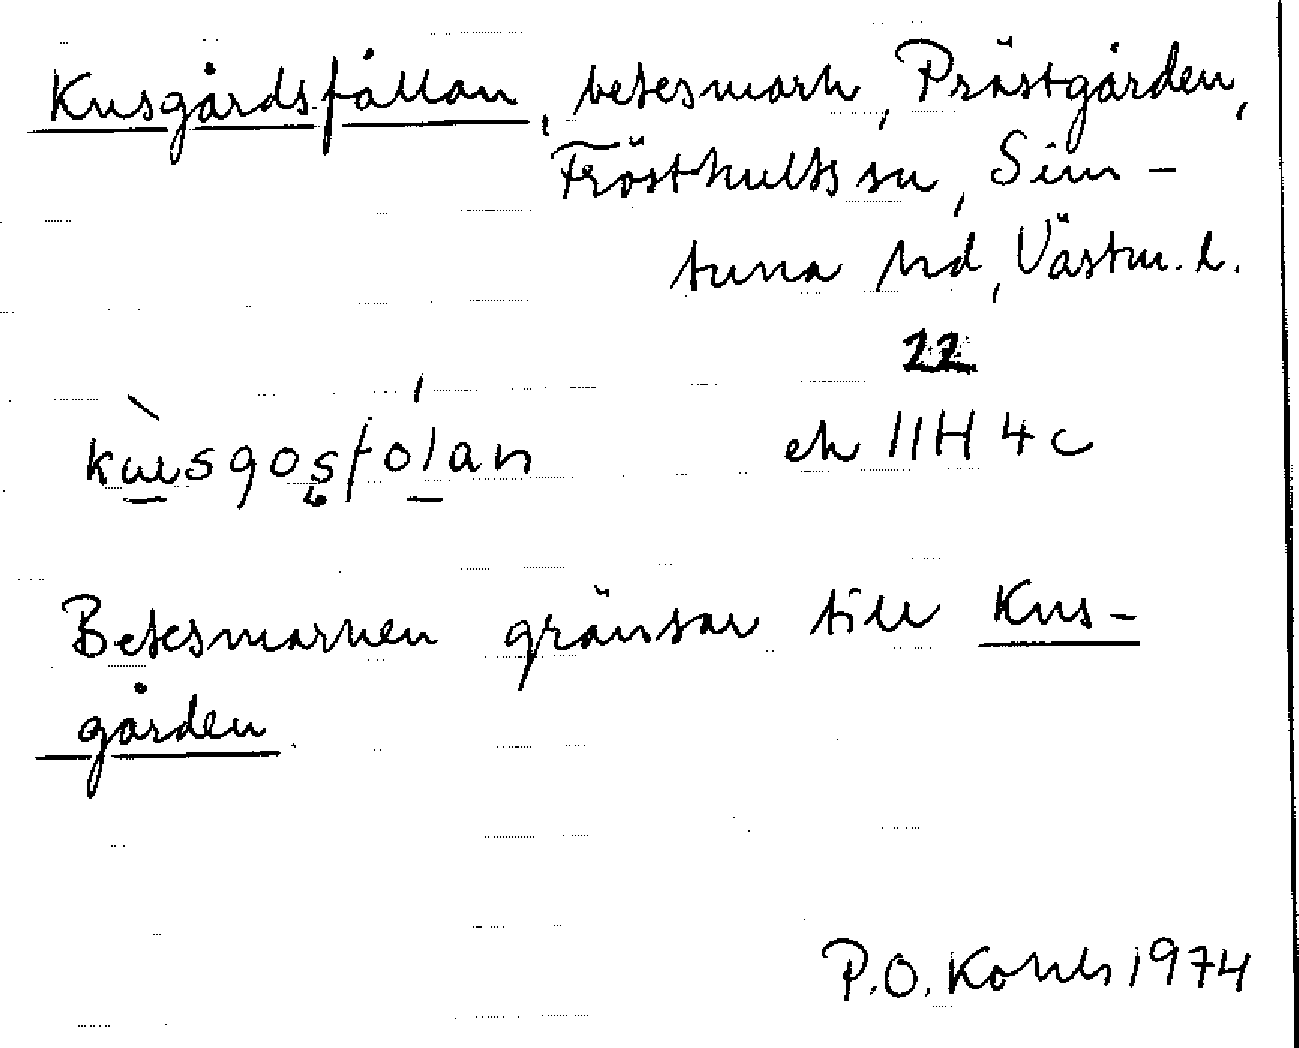 Kusgårdsfållan, betesmark, Prästgården,
Frösthults sn, Sim-
tuna hd, Västm. l.
22
ek 11H 4c
Betesmarken gränsar till Kus-
gården
P.O. 1974